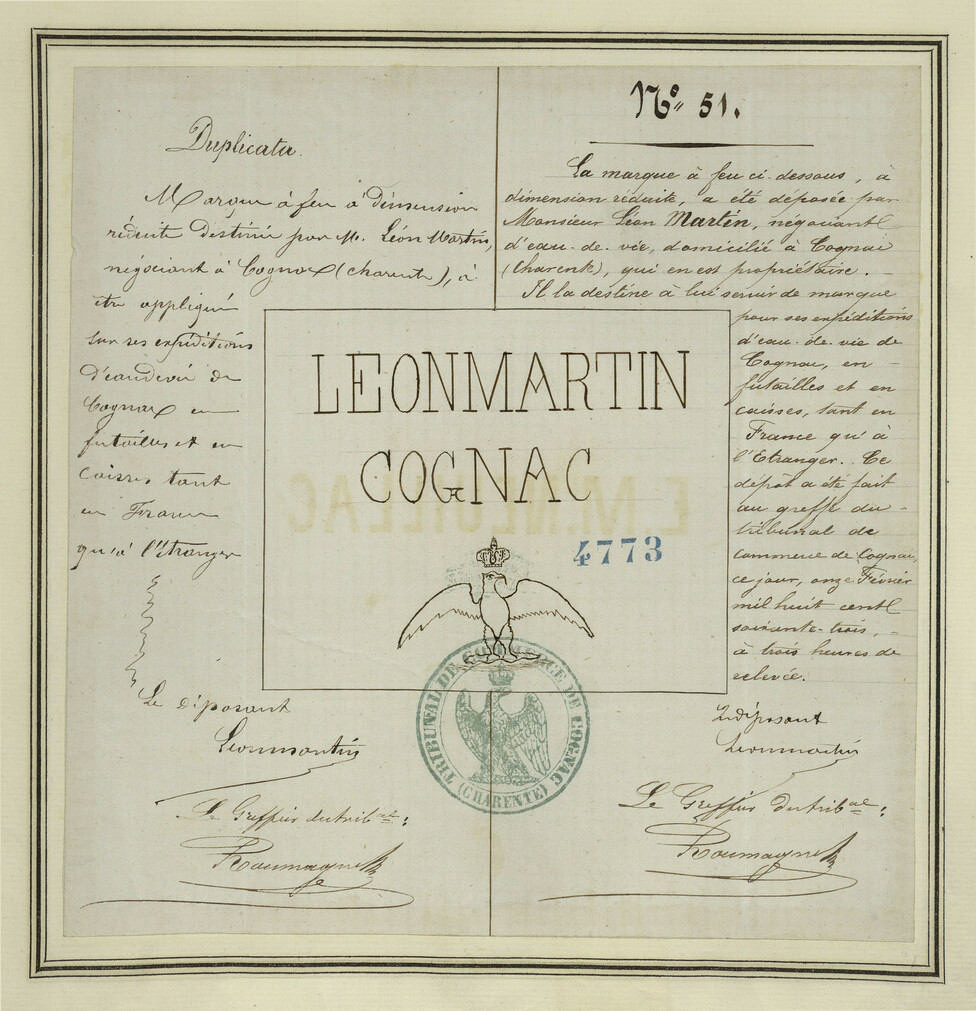 Duplicata.
Marque à feu à dimension
réduite destinée par M. Léon Martin,
négociant à Cognac (charente), à
être appliquée
sur ses expéditions
d'eaudevie de
Cognac en
futailles et en
caisses tant
en France
qu'à l'étranger
Le déposant
Leonmartin
Le Greffier du trib.al :
Roumagne
Nº 51.
La marque à feu ci-dessous, à
dimension réduite, a été déposée par
Monsieur Léon Martin, négociant
d'eau-de-vie, domicilié à Cognac
(Charente), qui en est propriétaire.
Il la destine à lui servir de marque
pour ses expéditions
d'eau-de-vie de
Cognac, en
futailles et en
caisses, tant en
France qu'à
l'Etranger. Ce
dépôt a été fait
au greffe du
tribunal de
commerce de Cognac,
ce jour, onze Février
mil huit cent
soixante-trois,
à trois heures de
relevée.
Le déposant
Leonmartin
Le Greffier du trib.al :
Roumagne
LEONMARTIN
COGNAC
E.M.NEUILLAC
4773
TRIBUNAL DE COMMERCE DE COGNAC
(CHARENTE)